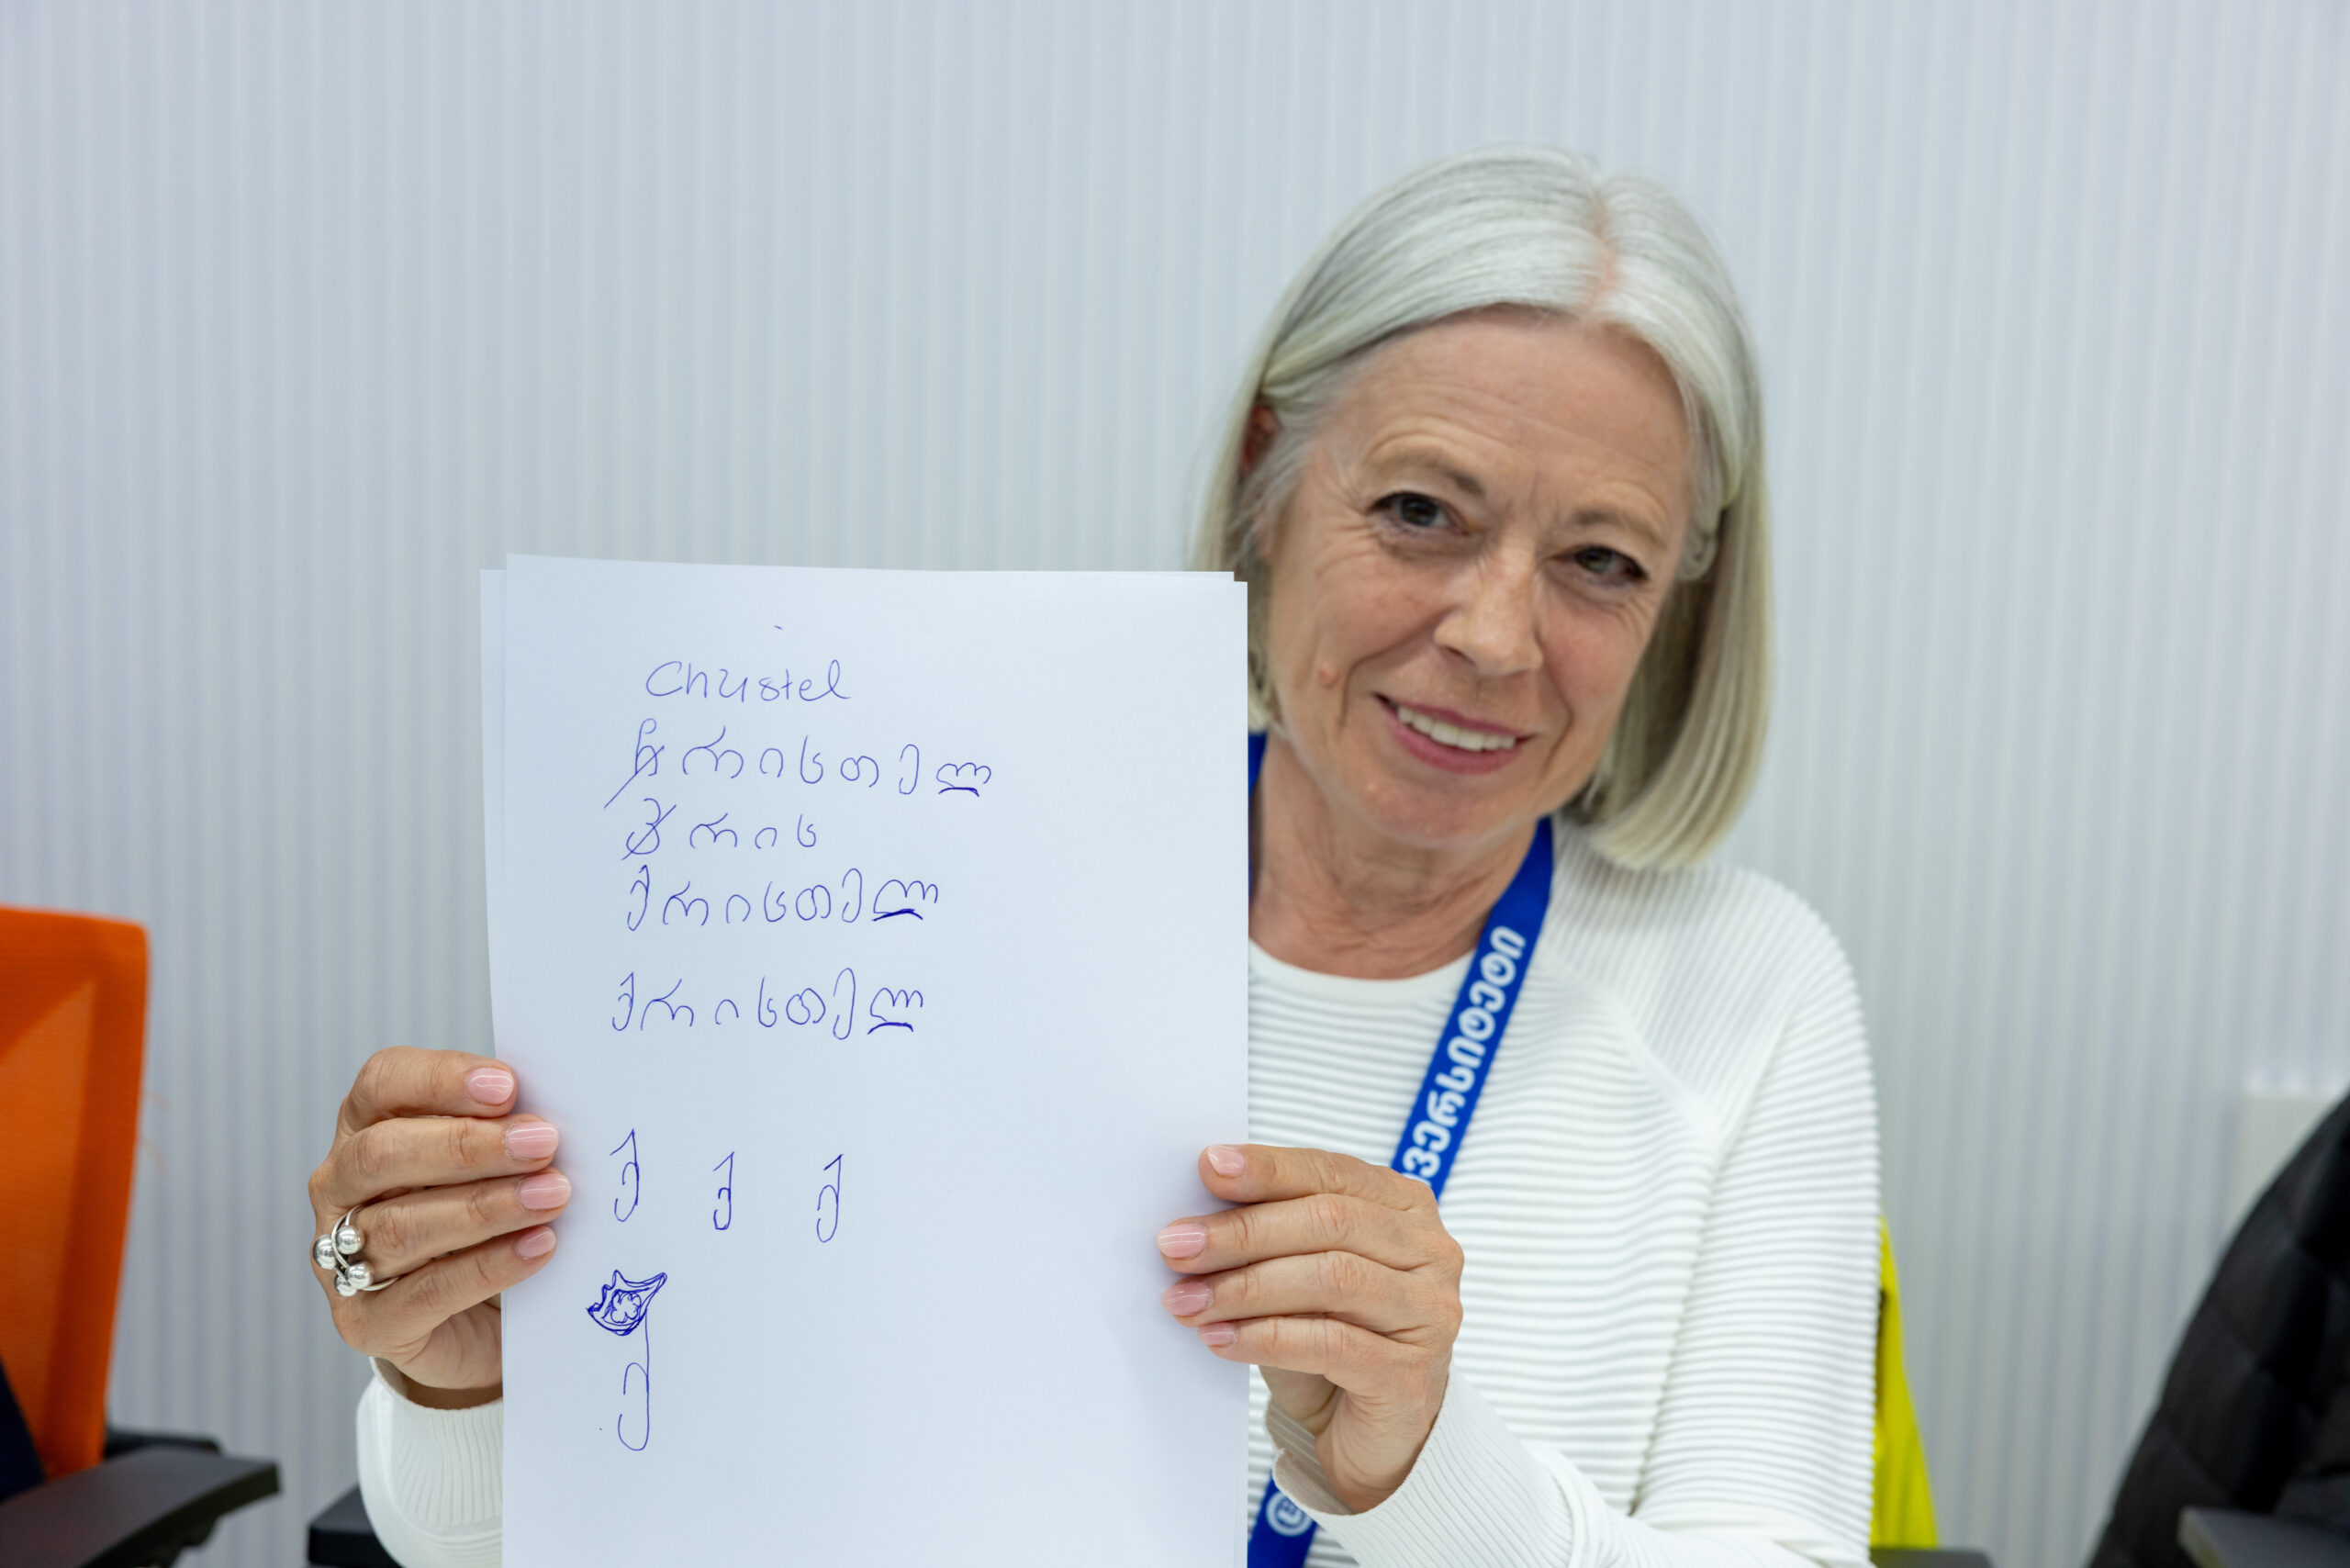 Christel
ჩრისთელ
ქრის
ქრისთელ
ქრისთელ
ქ ქ ქ
ქ
ვერსიტეტი